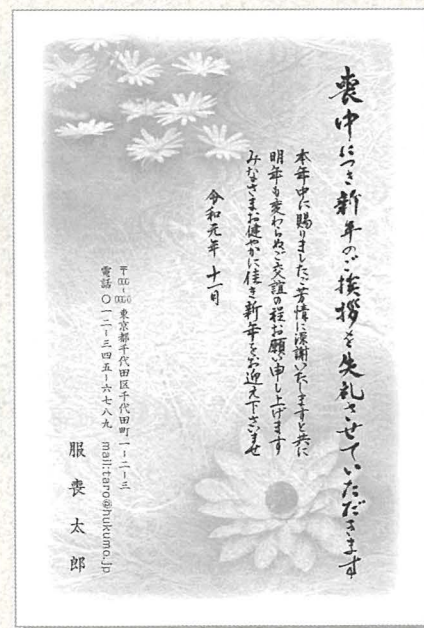 喪中につき新年のご挨拶を失礼させていただきます
本年中に賜りましたご芳情に深謝いたしますと共に
明年も変わらぬご交誼の程お願い申し上げます
みなさまお健やかに佳き新年をお迎え下さいませ
令和元年 十一月
〒000-0000 東京都千代田区千代田町一-二-三
電話 〇一二-三四五-六七八九 mail:taro@hukumo.jp
服喪太郎